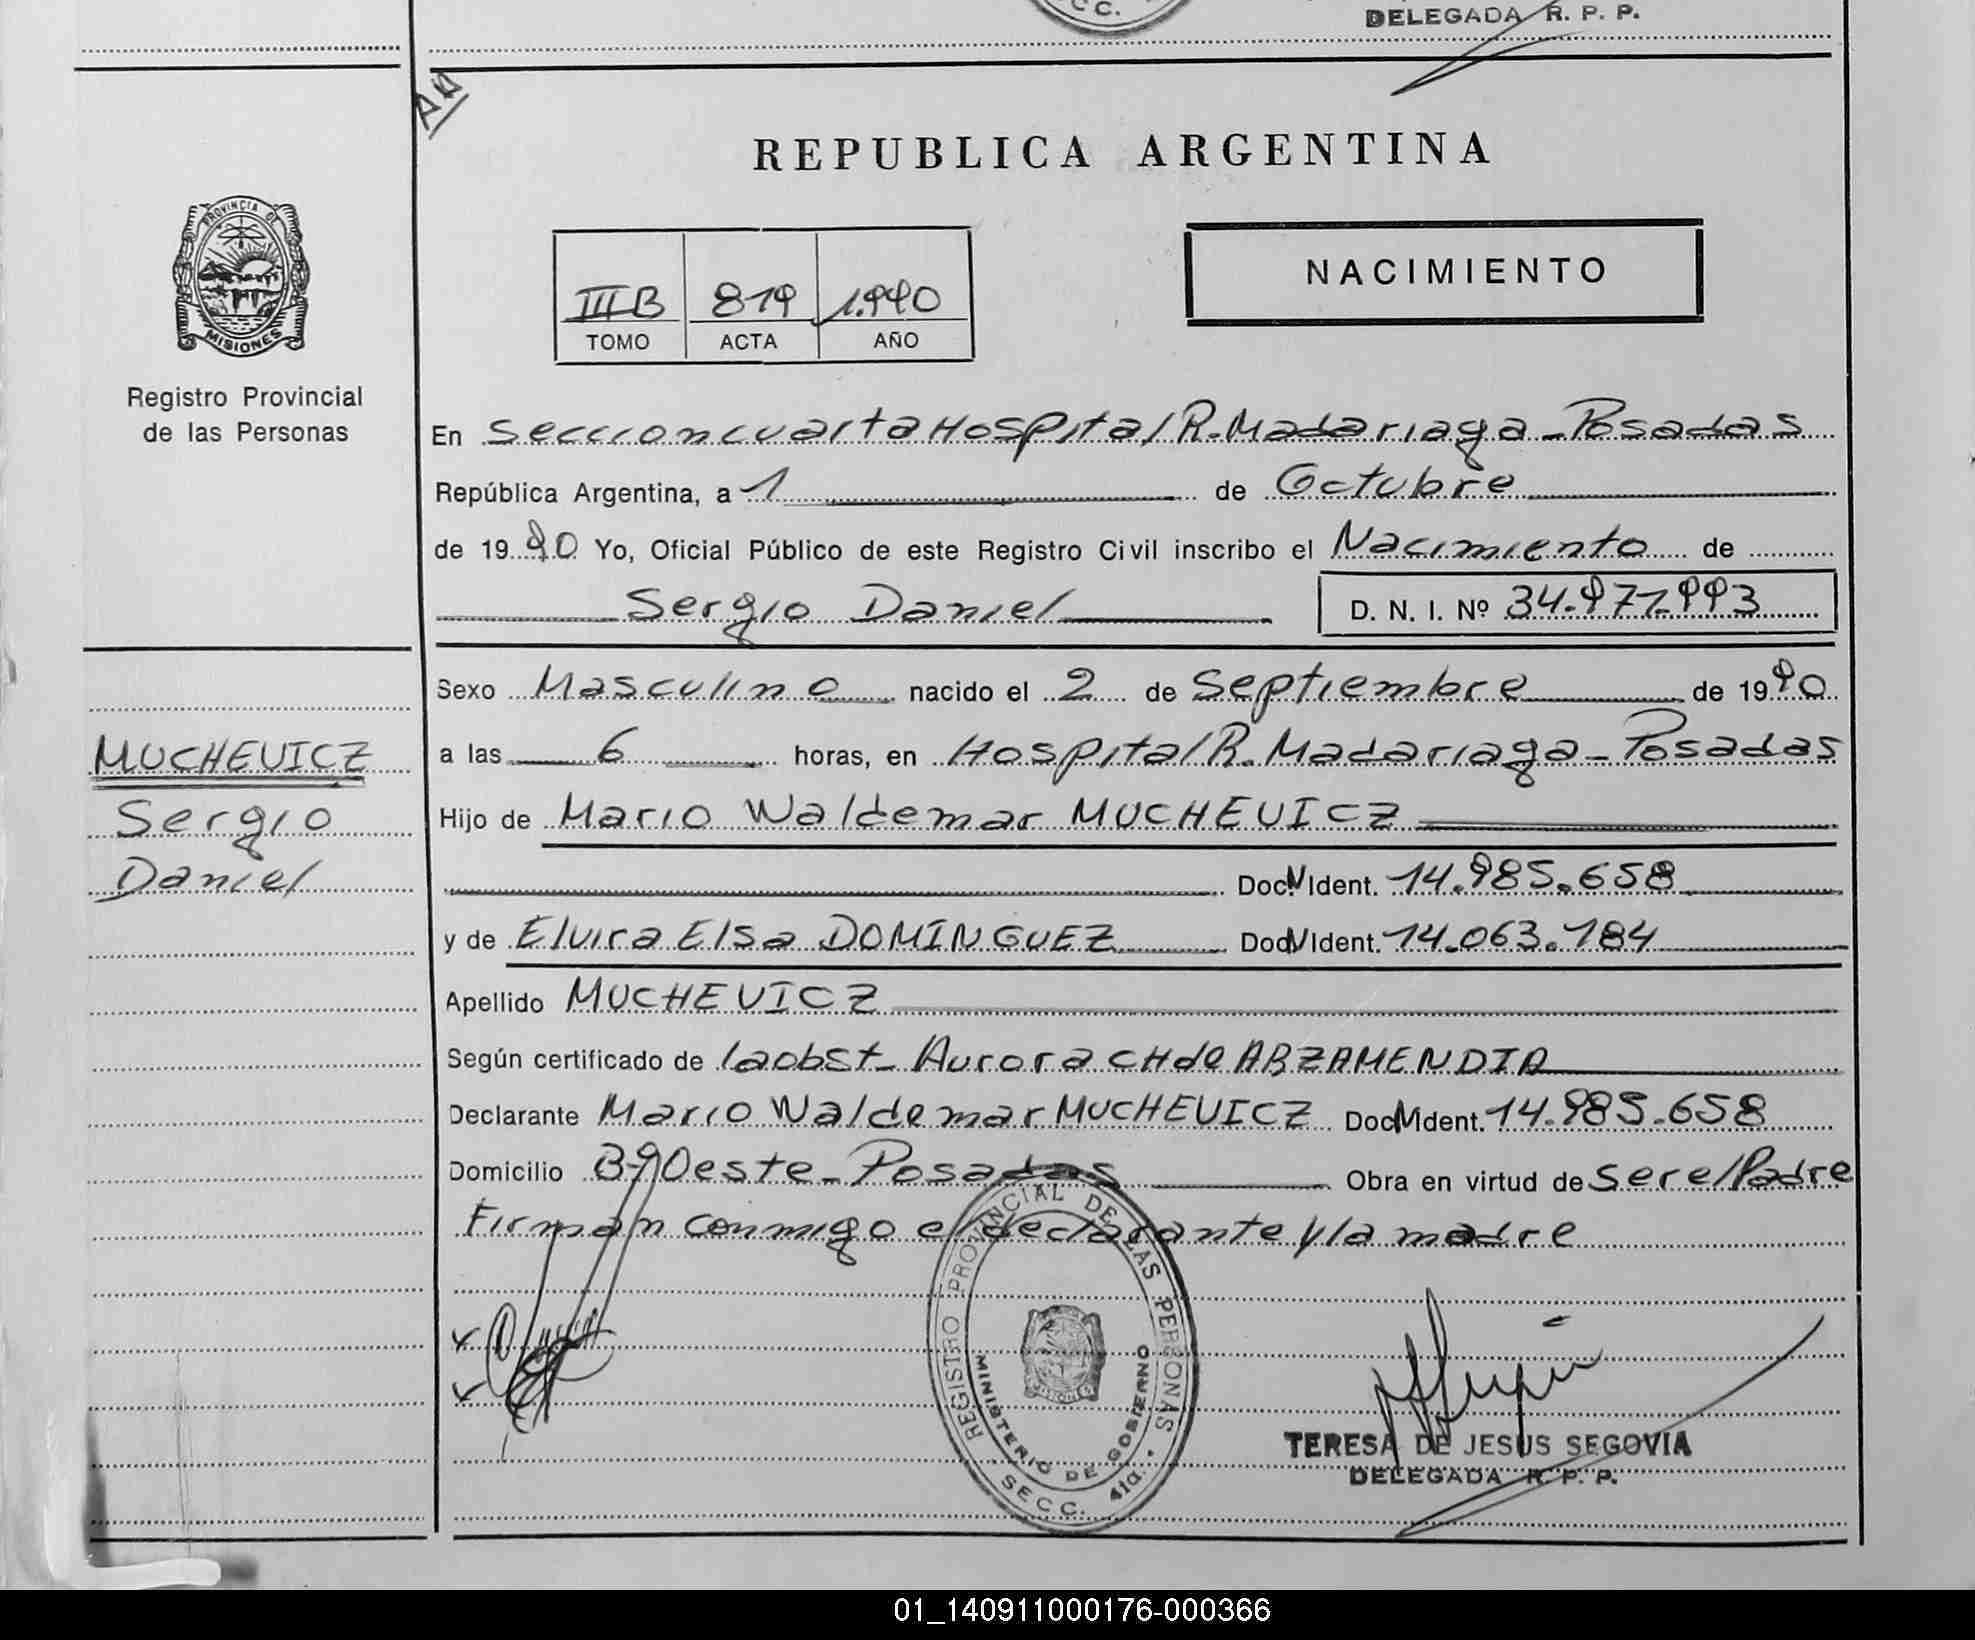 DELEGADA R. P. P.
REPUBLICA ARGENTINA
PROVINCIA DE
MISIONES
Registro Provincial
de las Personas
III B 819 1.990
TOMO ACTA AÑO
NACIMIENTO
En seccion cuarta Hospital R. Madariaga - Posadas
República Argentina, a 1 de Octubre
de 1990 Yo, Oficial Público de este Registro Civil inscribo el Nacimiento de
Sergio Daniel D. N. I. Nº 34.971.993
Sexo Masculino nacido el 2 de Septiembre de 1990
a las 6 horas, en Hospital R. Madariaga - Posadas
MUCHEVICZ
Sergio
Daniel
Hijo de Mario Waldemar MUCHEVICZ
Doc. N Ident. 14.985.658
y de Elvira Elsa DOMINGUEZ Doc. N Ident. 14.063.184
Apellido MUCHEVICZ
Según certificado de la obst - Aurora CH de ARZAMENDIA
Declarante Mario Waldemar MUCHEVICZ Doc. N Ident. 14.985.658
Domicilio Bº Oeste - Posadas Obra en virtud de ser el Padre
Firman conmigo el declarante y la madre
REGISTRO PROVINCIAL DE LAS PERSONAS
MINISTERIO DE GOBIERNO
SECC. 4ta.
TERESA DE JESUS SEGOVIA
DELEGADA R. P. P.
01_140911000176-000366